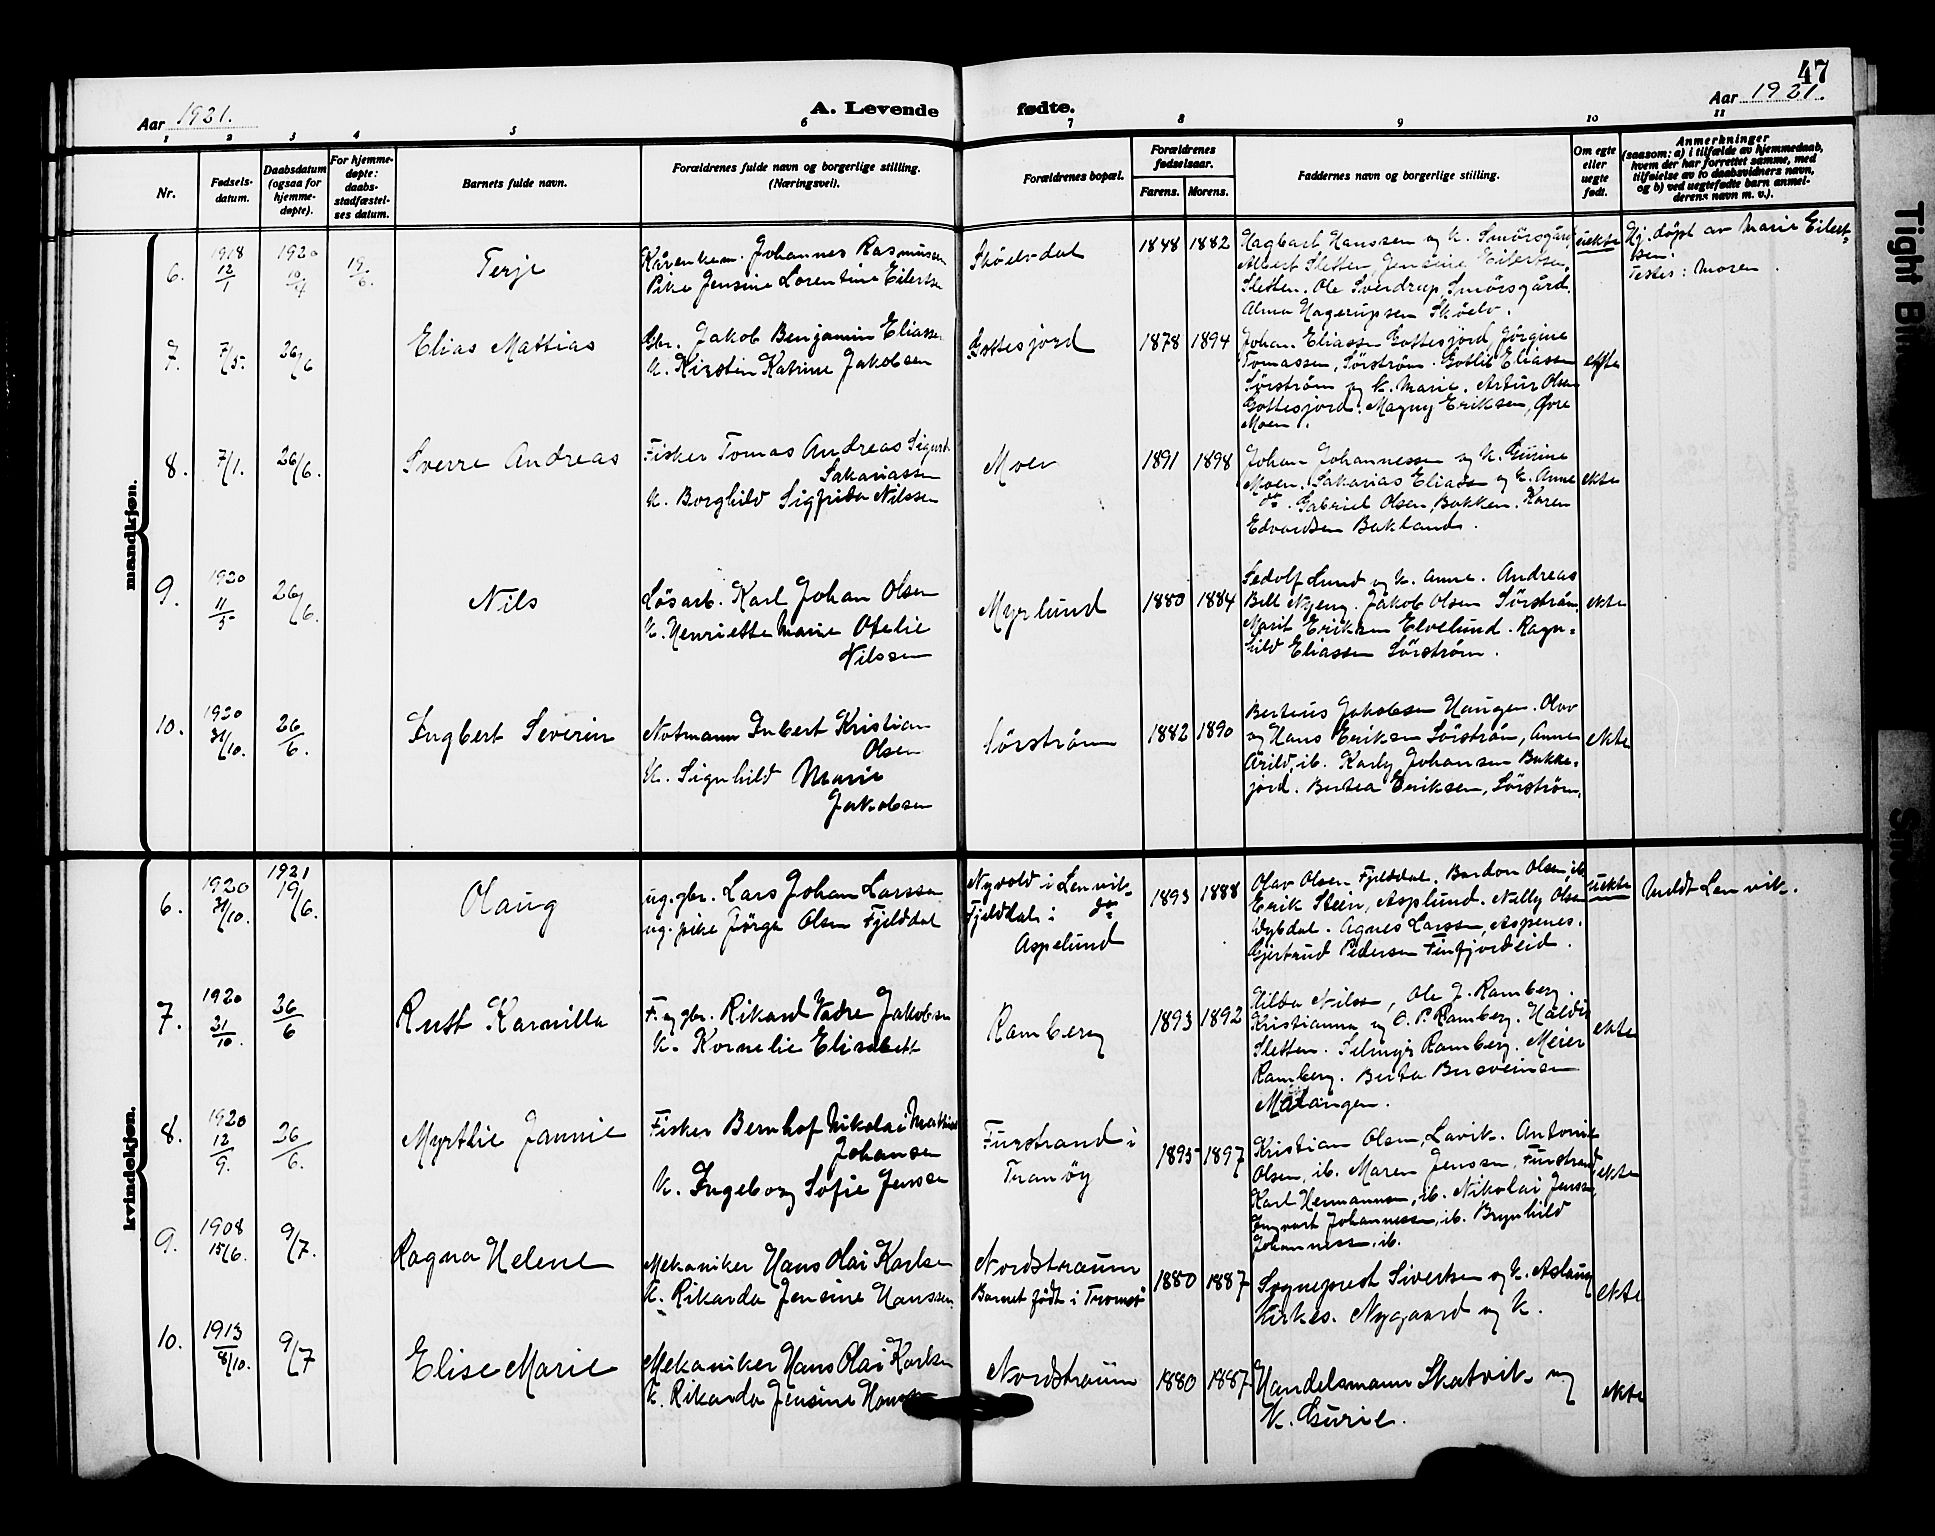 47
Aar 1921.
A. Levende
fødte.
Aar 1921.
1 2 3 4 5 6 7 8 9 10 11
Nr.
Fødsels-
datum.
Daabsdatum
(ogsaa for
hjemme-
døpte).
For hjemme-
døpte:
daabs-
stadfæstel-
ses datum.
Barnets fulde navn.
Forældrenes fulde navn og borgerlige stilling.
(Næringsvei).
Forældrenes bopæl.
Forældrenes
fødselsaar.
Farens. Morens.
Faddernes navn og borgerlige stilling.
Om egte
eller
uegte
født.
Anmerkninger
(saasom: a) i tilfælde av hjemmedaab,
hvem der har forrettet samme, med
tilføielse av to daabsvidners navn,
og b) ved uegtefødte barn anmel-
derens navn m. v.).
mandkjøn.
6.
1918
12/1
1920
10/4
19/6.
Terje
Kårenkem. Johannes Rasmussen
Pike Jensine Lorentine Eilertsen
Skøelvdal
1848 1882
Hagbart Hanssen og k. Smörsgård
Albert Sletten, Jensine Eilertsen,
Sletten. Ole Sverdrup, Smörsgård.
Alma Hagerupsen Sköelv.
uekte
Hj. døpt av Marie Eilert-
sen.
Testes: Moren.
7.
7/5.
26/6
Elias Mattias
Gbr. Jakob Benjamin Eliassen
k. Kirstin Katrine Jakobsen
Gottesjord
1878 1894
Johan Eliassen Gottesjord, Jörgine
Tomassen, Sörström. Gotlib Eliassen
Sörström og k. Marie. Artur Olsen
Gottesjord. Magny Eriksen, Øvre
Moen.
ekte
8.
7/1.
26/6.
Sverre Andreas
Fisker Tomas Andreas Sigurd
Sakariassen
k. Borghild Sigfrida Nilssen
Moen
1891 1898
Johan Johannessen og k. Gurine
Moen. Sakarias Eliassen og k. Anne
do. Gabriel Olsen, Bakken. Karen
Edvardsen Bakland.
ekte
9.
1920
11/5
26/6.
Nils
Løsarb. Karl Johan Olsen
k. Henriette Marie Ofelie
Nilssen
Myrlund
1880 1884
Sedolf Lund og k. Anne. Andreas
Jakob Olsen Sörström
Marit Eriksen Elvelund. Ragn-
hild Eliassen Sörström.
ekte
10.
1920
31/10.
26/6.
Ingbert Severin
Notmann Inbert Kristian
Olsen
k. Signhild Marie
Jakobsen
Sörström
1882 1890
Bertinus Jakobsen Haugen. Olav
og Hans Eriksen Sörström, Anne
Arild, ib. Karly Johansen Bakke-
jord. Bertea Eriksen, Sörström.
ekte
kvindekjøn.
6.
1920
31/10.
1921
19/6.
Olaug
ug. gbr. Lars Johan Larssen
ug. pike Jörga Olsen Fjelddal
Nyvold i Lenvik-
Fjelddal i do
Aspelund
1893 1888
Olav Olsen Fjelddal. Bardon Olsen, ib.
Erik Steen, Asplund. Nelly Olsen
Agnes Larssen, Aspenes.
Gjertrud Pedersen Finfjordeid.
uekte
Meldt Lenvik.
7.
1920
31/10.
26/6
Rutt Kamilla
F. og gbr. Rikard Vadre Jakobsen
k. Kornelie Elisabett
Ramberg
1893 1892
Hilda Nilssen, Ole J. Ramberg.
Kristianna og O. P. Ramberg. Haldis
Sletten. Selmyr Ramberg. Meier
Ramberg. Berta Bersveinsen
Malangen.
ekte
8.
1920
12/9.
26/6.
Myrthie Jannie
Fisker Bernhof Nikolai Mathias
Johansen
k. Ingeborg Sofie Jenssen
Furstrand i
Tranöy
1895 1897
Kristian Olsen, Lavik. Antonie
Olsen, ib. Maren Jenssen, Furstrand
Karl Hermannsen, ib. Nikolai Jenssen,
Ingvart Johannessen, ib. Brynhild
Johannessen, ib.
ekte
9.
1908
15/6.
9/7.
Ragna Helene
Mekaniker Hans Olai Karlsen
k. Rikarda Jensine Hanssen
Nordstraum
Barnet født i Tromsö
1880 1887
Sogneprest Sivertsen og k. Aslaug
Kirkes. Nygaard og k.
ekte
10.
1913
8/10.
9/7
Elise Marie
Mekaniker Hans Olai Karlsen
k. Rikarda Jensine Hanssen
Nordstraum
1880 1887
Handelsmann Skatvik og
k. Gurie.
ekte
Tight Bin